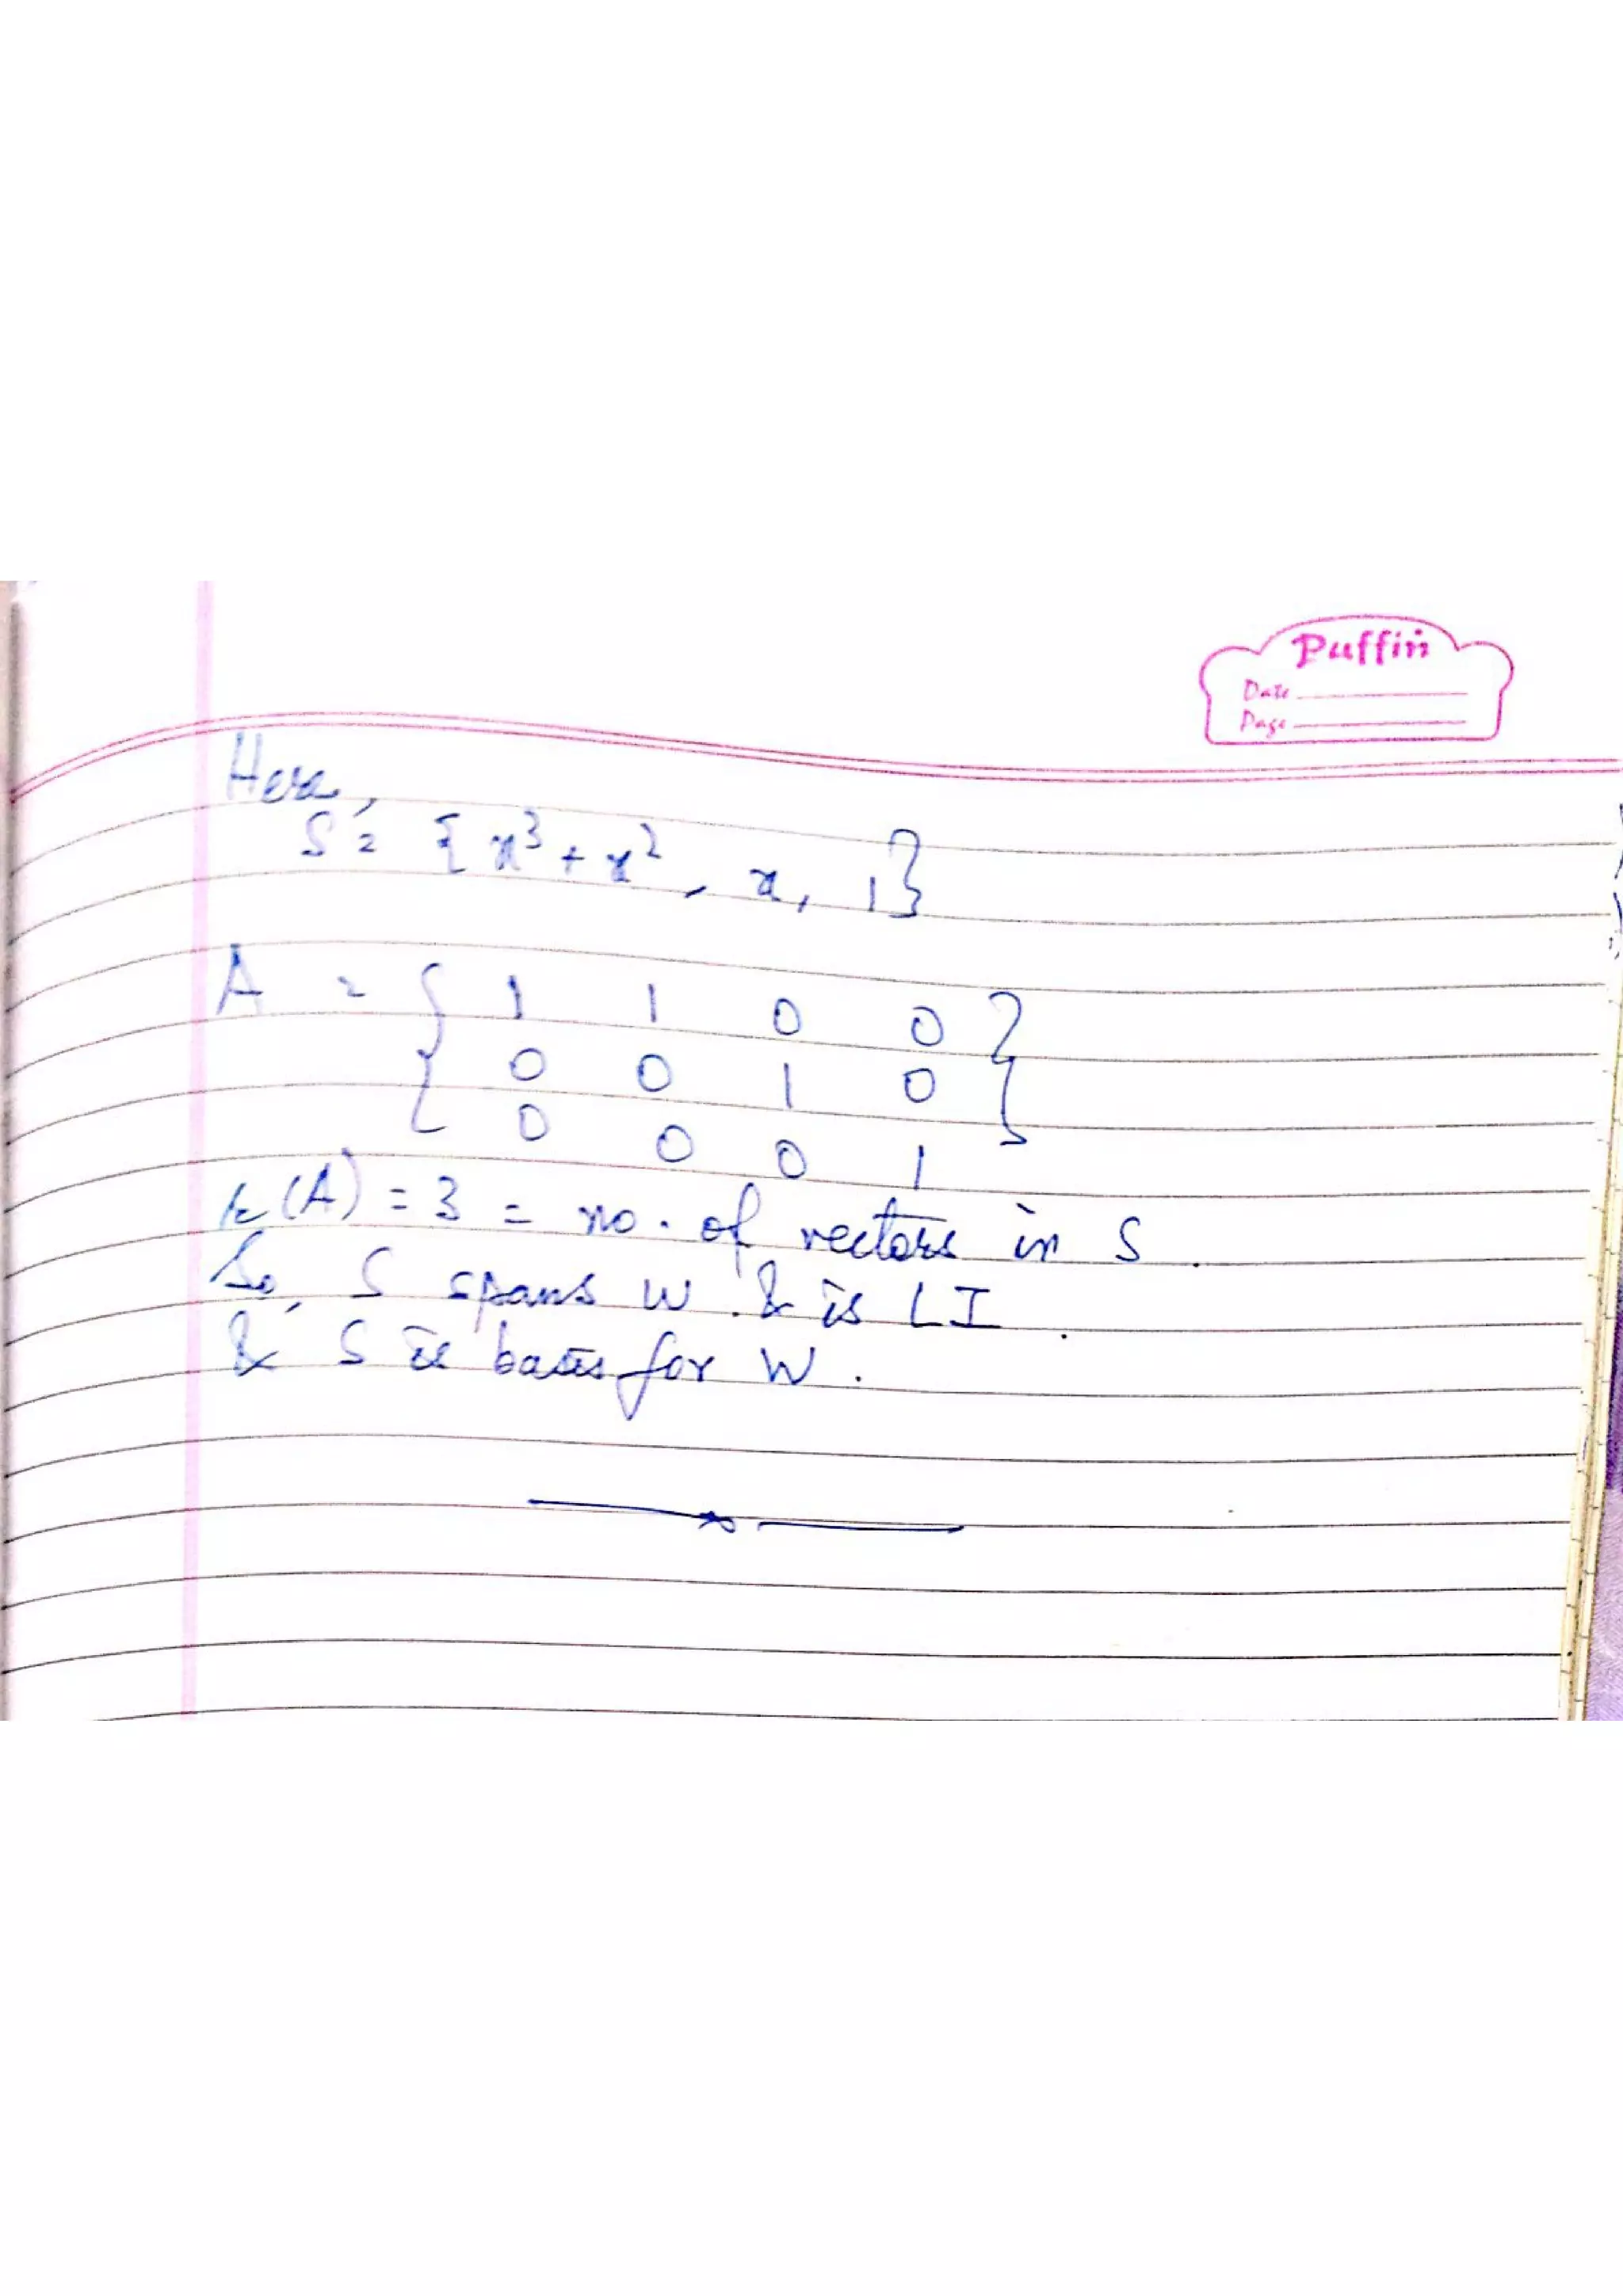 Puffin
Date
Page
Here,
S = { x³ + x² , x, 1}
A = { 1 1 0 0 }
0 0 1 0
0 0 0 1
r(A) = 3 = no. of vectors in S.
So, S spans W. & is LI.
& S is basis for W.